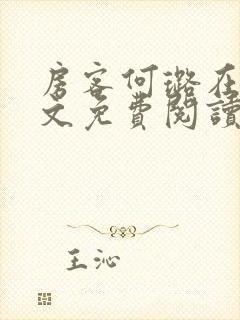 房客何璐在
文免費閱讀
王沁